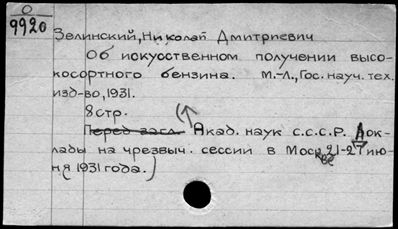 О
9920
Зелинский, Николай Дмитриевич
Об искусственном получении высо-
косортного бензина. М.-Л., Гос. науч. тех.
изд-во, 1931.
8 стр.
Перед засл. Акад. наук С.С.С.Р. Док-
лады на чрезвыч. сессии в Москве 21-27 ию-
ня 1931 года.)